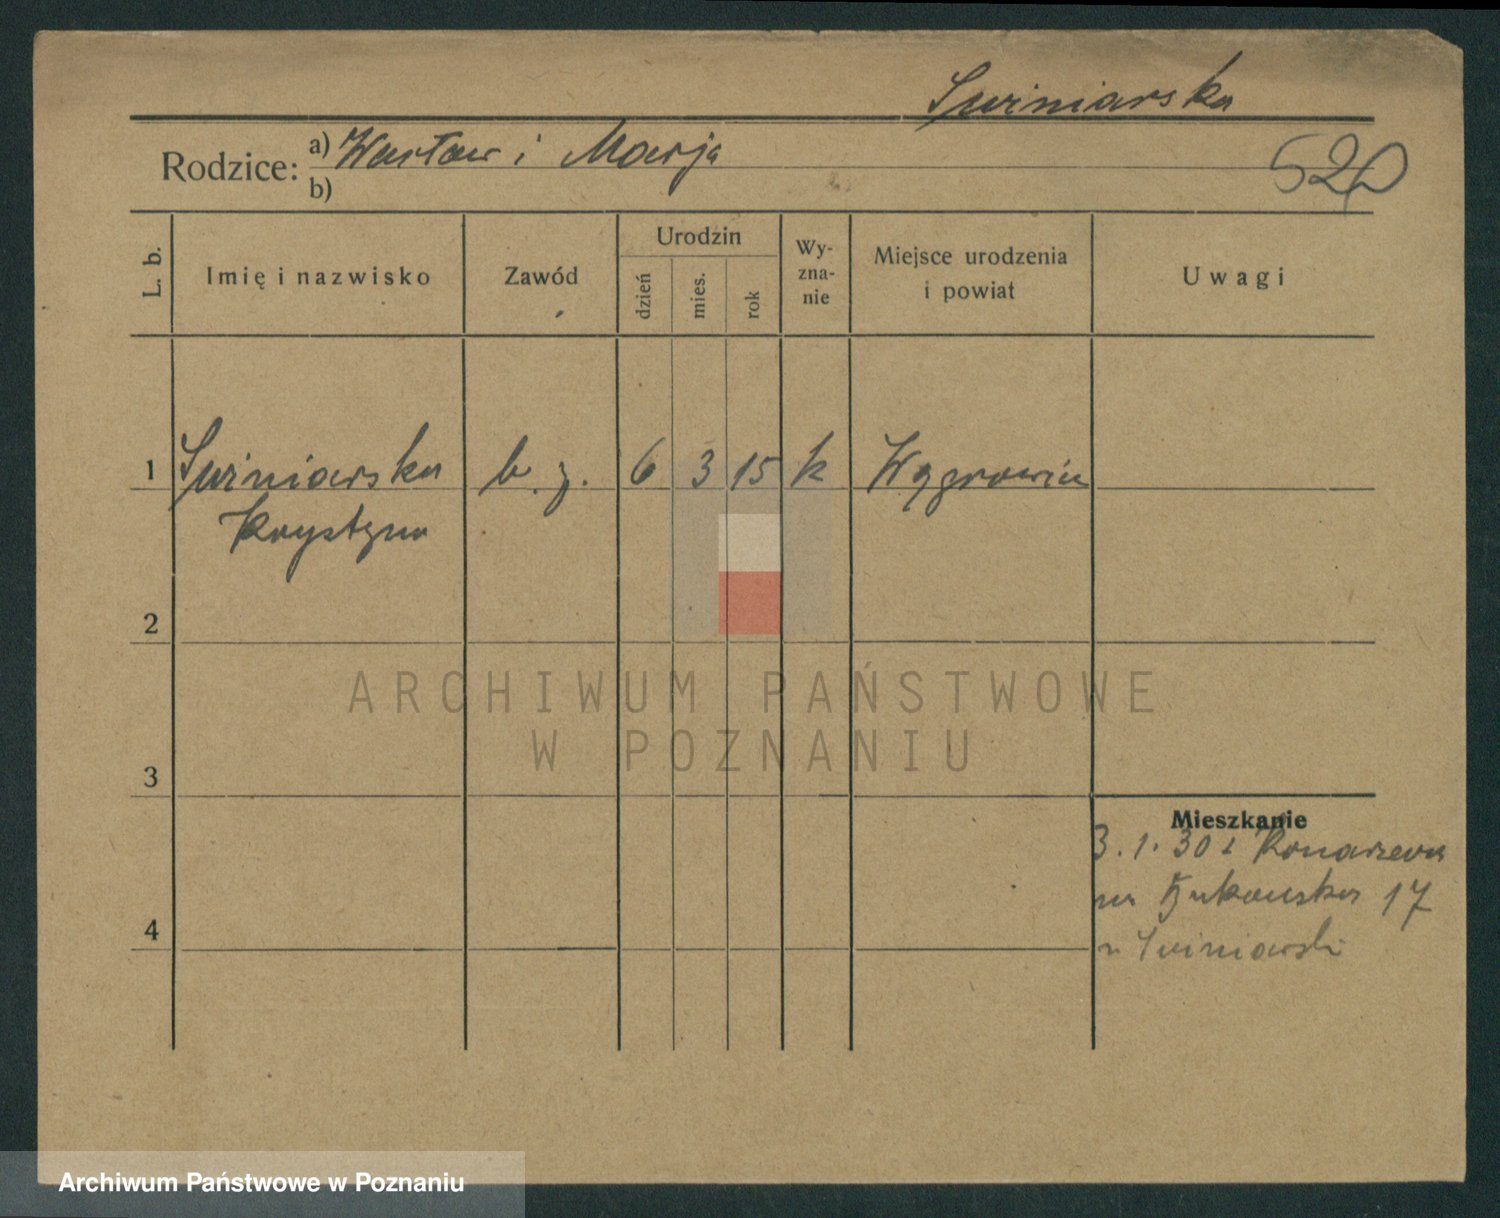 Swiniarska
Rodzice: a) Wacław i Marja
b)
520
L. b.
Imię i nazwisko
Zawód
Urodzin
dzień
mies.
rok
Wy-
zna-
nie
Miejsce urodzenia
i powiat
Uwagi
1 Swiniarska b. z. 6 3 15 k
Krystyna
2
3
4
Mieszkanie
3.1.30 z Konarzewa
na Bukowska 17
Swiniarski
ARCHIWUM PAŃSTWOWE
W POZNANIU
Archiwum Państwowe w Poznaniu